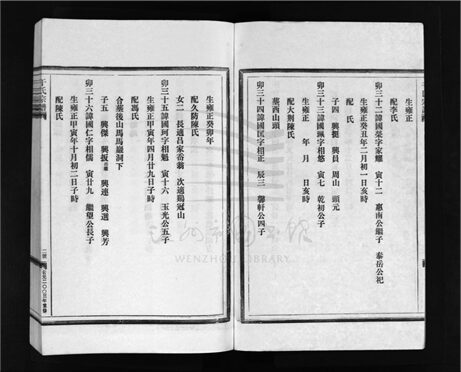 生雍正
配李氏
卯三十二諱國榮字家耀 寅十二 惠南公繼子 泰岳公祀
生雍正癸丑年二月初一日亥時
配 氏
卯三十三諱國珮字相悠 寅七 乾初公子
生雍正 年 月 日亥時
子四 興 興員 周山 頭元
配大荆陳氏
墓西山頭
卯三十四諱國匡字相正 辰三 馨軒公四子
生雍正癸卯年
配久防陳氏
女二 長適呂家岙翁 次適鷄冠山
卯三十五諱國珂字相魁 寅十六 玉光公五子
生雍正甲寅年四月廿九日子時
配馮氏
子五 興傑 興振 興連 興選 興芳
合墓後山馬馬巖洞下
卯三十六諱國仁字相儒 寅廿九 繼望公長子
生雍正甲寅年十月初二日子時
配陳氏
于氏宗譜
WENZHOU LIBRARY